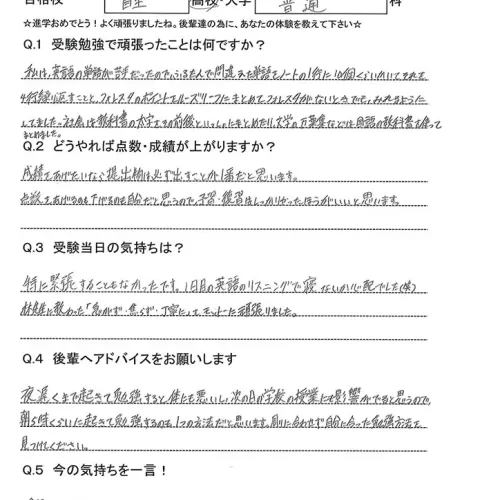 合格校 高校・大学 普通 科
☆進学おめでとう！よく頑張りましたね。後輩達の為に、あなたの体験を教えて下さい☆
Q.1 受験勉強で頑張ったことは何ですか？
私は、英語の単語が苦手だったので、ふるたんで間違えた単語をノートの1行に10個くらいかいて、それを
4行繰り返すことと、フォレスタのポイントをルーズリーフにまとめて、フォレスタがないときでも、みれるように
してました。社会は教科書の太字とその前後といっしょにまとめたり、文学の万葉集などは国語の教科書も使って
まとめました。
Q.2 どうやれば点数・成績が上がりますか？
成績をあげたいなら提出物は必ず出すことが1番だと思います。
点数をあげるのも下げるのも自分だと思うので、予習・復習はしっかりやったほうがいいと思います。
Q.3 受験当日の気持ちは？
特に緊張することもなかったです。1日目の英語のリスニングで寝ないか心配でした(笑)
に教わった「急がず・焦らず・丁寧に」って、モットーに頑張りました。
Q.4 後輩へアドバイスをお願いします
夜遅くまで起きて勉強すると体にも悪いし、次の日の学校の授業にも影響がでると思うので、
朝5時くらいに起きて勉強するのも1つの方法だと思います。周りに合わせず自分に合った勉強方法を
見つけてください。
Q.5 今の気持ちを一言！